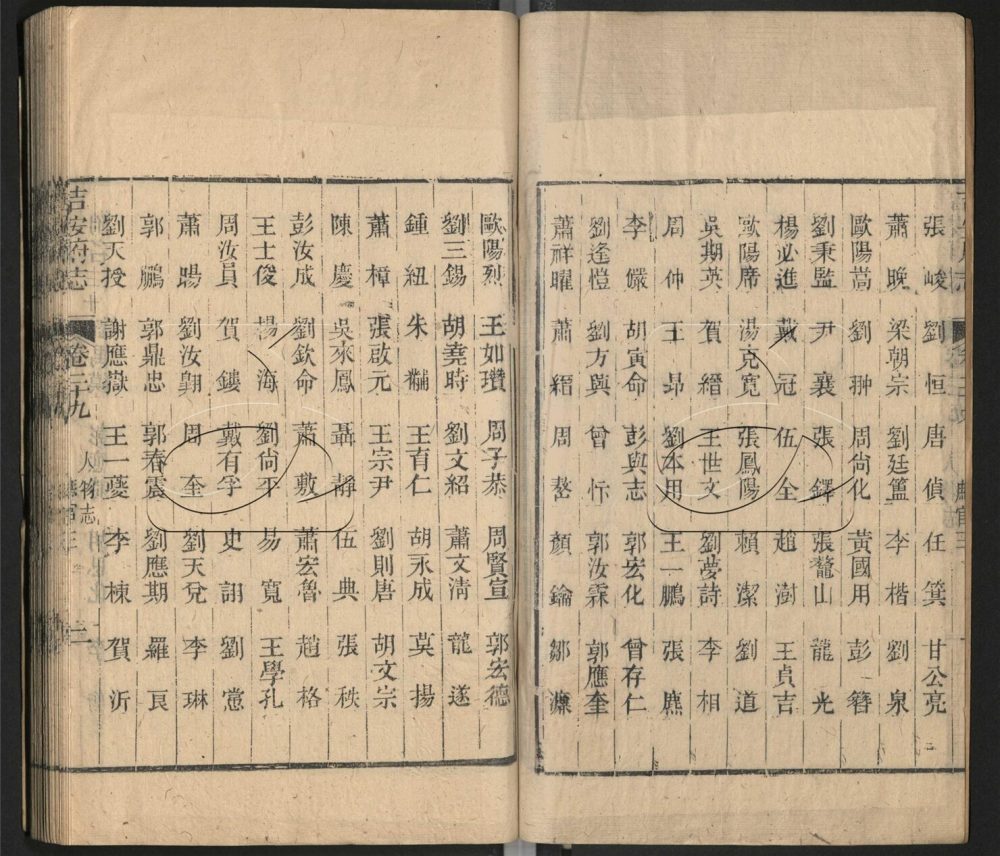 張峻 劉恒 唐偵 任箕 甘公亮
蕭晚 梁朝宗 劉廷簠 李楷 劉泉
歐陽嵩 劉翀 周尚化 黃國用 彭簪
劉秉監 尹襄 張鐸 張鰲山 龍光
楊必進 戴冠 伍全 趙澍 王貞吉
歐陽席 湯克寬 張鳳陽 賴潔 劉道
吳期英 賀縉 王世文 劉夢詩 李相
周仲 王昻 劉本用 王一鵬 張
李儼 胡寅命 彭與志 郭宏化 曾存仁
劉逢愷 劉方興 曾忭 郭汝霖 郭應奎
蕭祥曜 蕭縉 周 顏錀 鄒濂
歐陽烈 王如瓚 周子恭 周賢宣 郭宏德
劉三錫 胡堯時 劉文紹 蕭文清 龍遂
鍾紐 朱黼 王育仁 胡永成 莫揚
蕭樟 張啟元 王宗尹 劉則唐 胡文宗
陳慶 吳來鳳 聶靜 伍典 張秩
彭汝成 劉欽命 蕭敷 蕭宏魯 趙格
王士俊 楊海 劉尙平 易寬 王學孔
周汝員 賀鏤 戴有孚 史詡 劉
蕭暘 劉汝翺 周奎 劉天兌 李琳
郭鵬 郭鼎忠 郭春震 劉應期 羅良
劉天授 謝應嶽 王一夔 李棟 賀沂
吉安府志 卷二十九 人物志 二